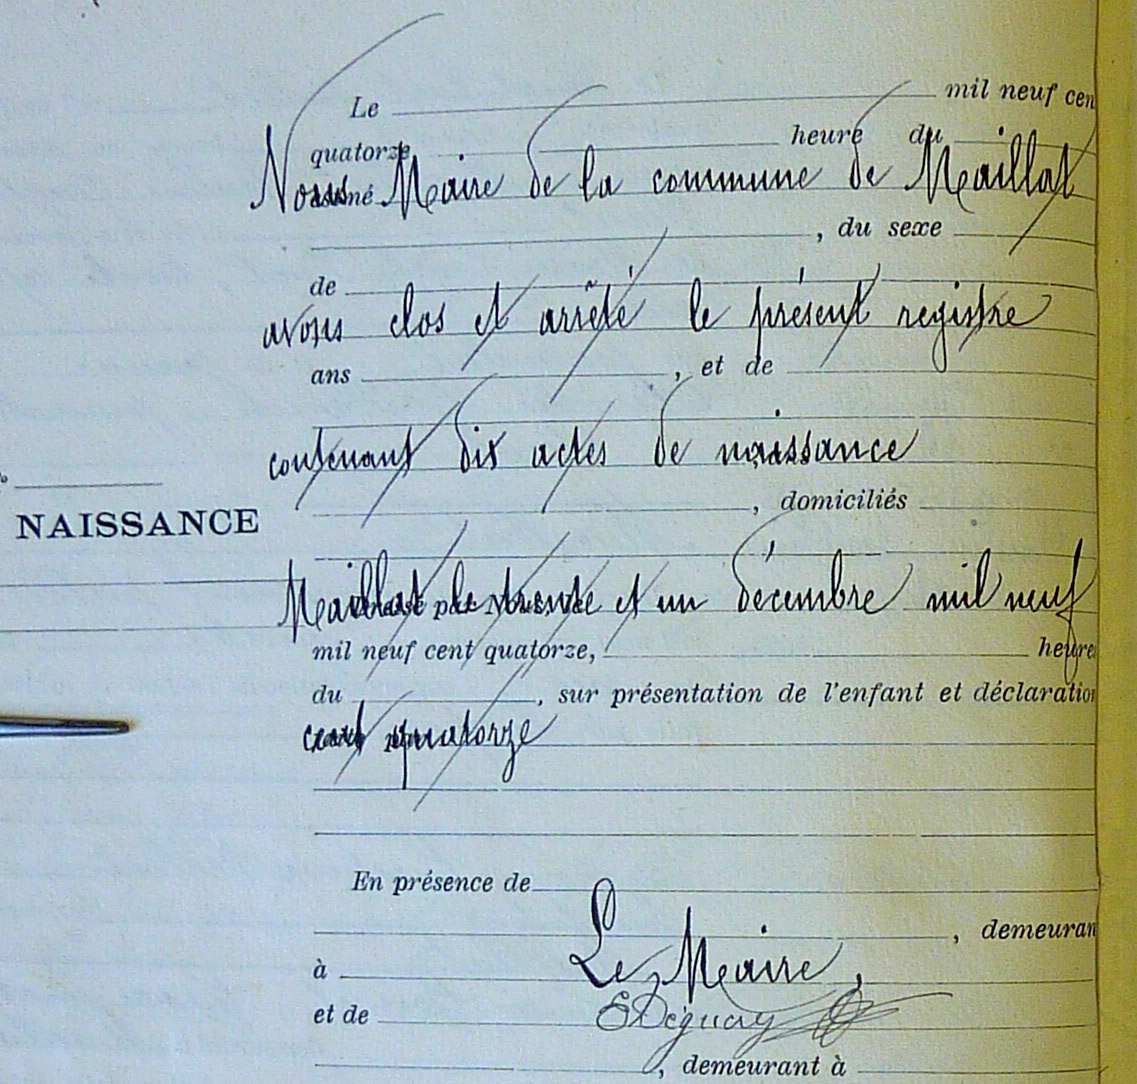 Le mil neuf cen
quatorze heure du
Nous Maire de la commune de Maillat
, du sexe
de
avons clos et arrêté le présent registre
ans , et de
contenant dix actes de naissance
, domiciliés
NAISSANCE
Maillat le trente et un décembre mil neuf
mil neuf cent quatorze, heure
du , sur présentation de l'enfant et déclaration
cent quatorze
En présence de
, demeuran
à Le Maire,
et de
, demeurant à